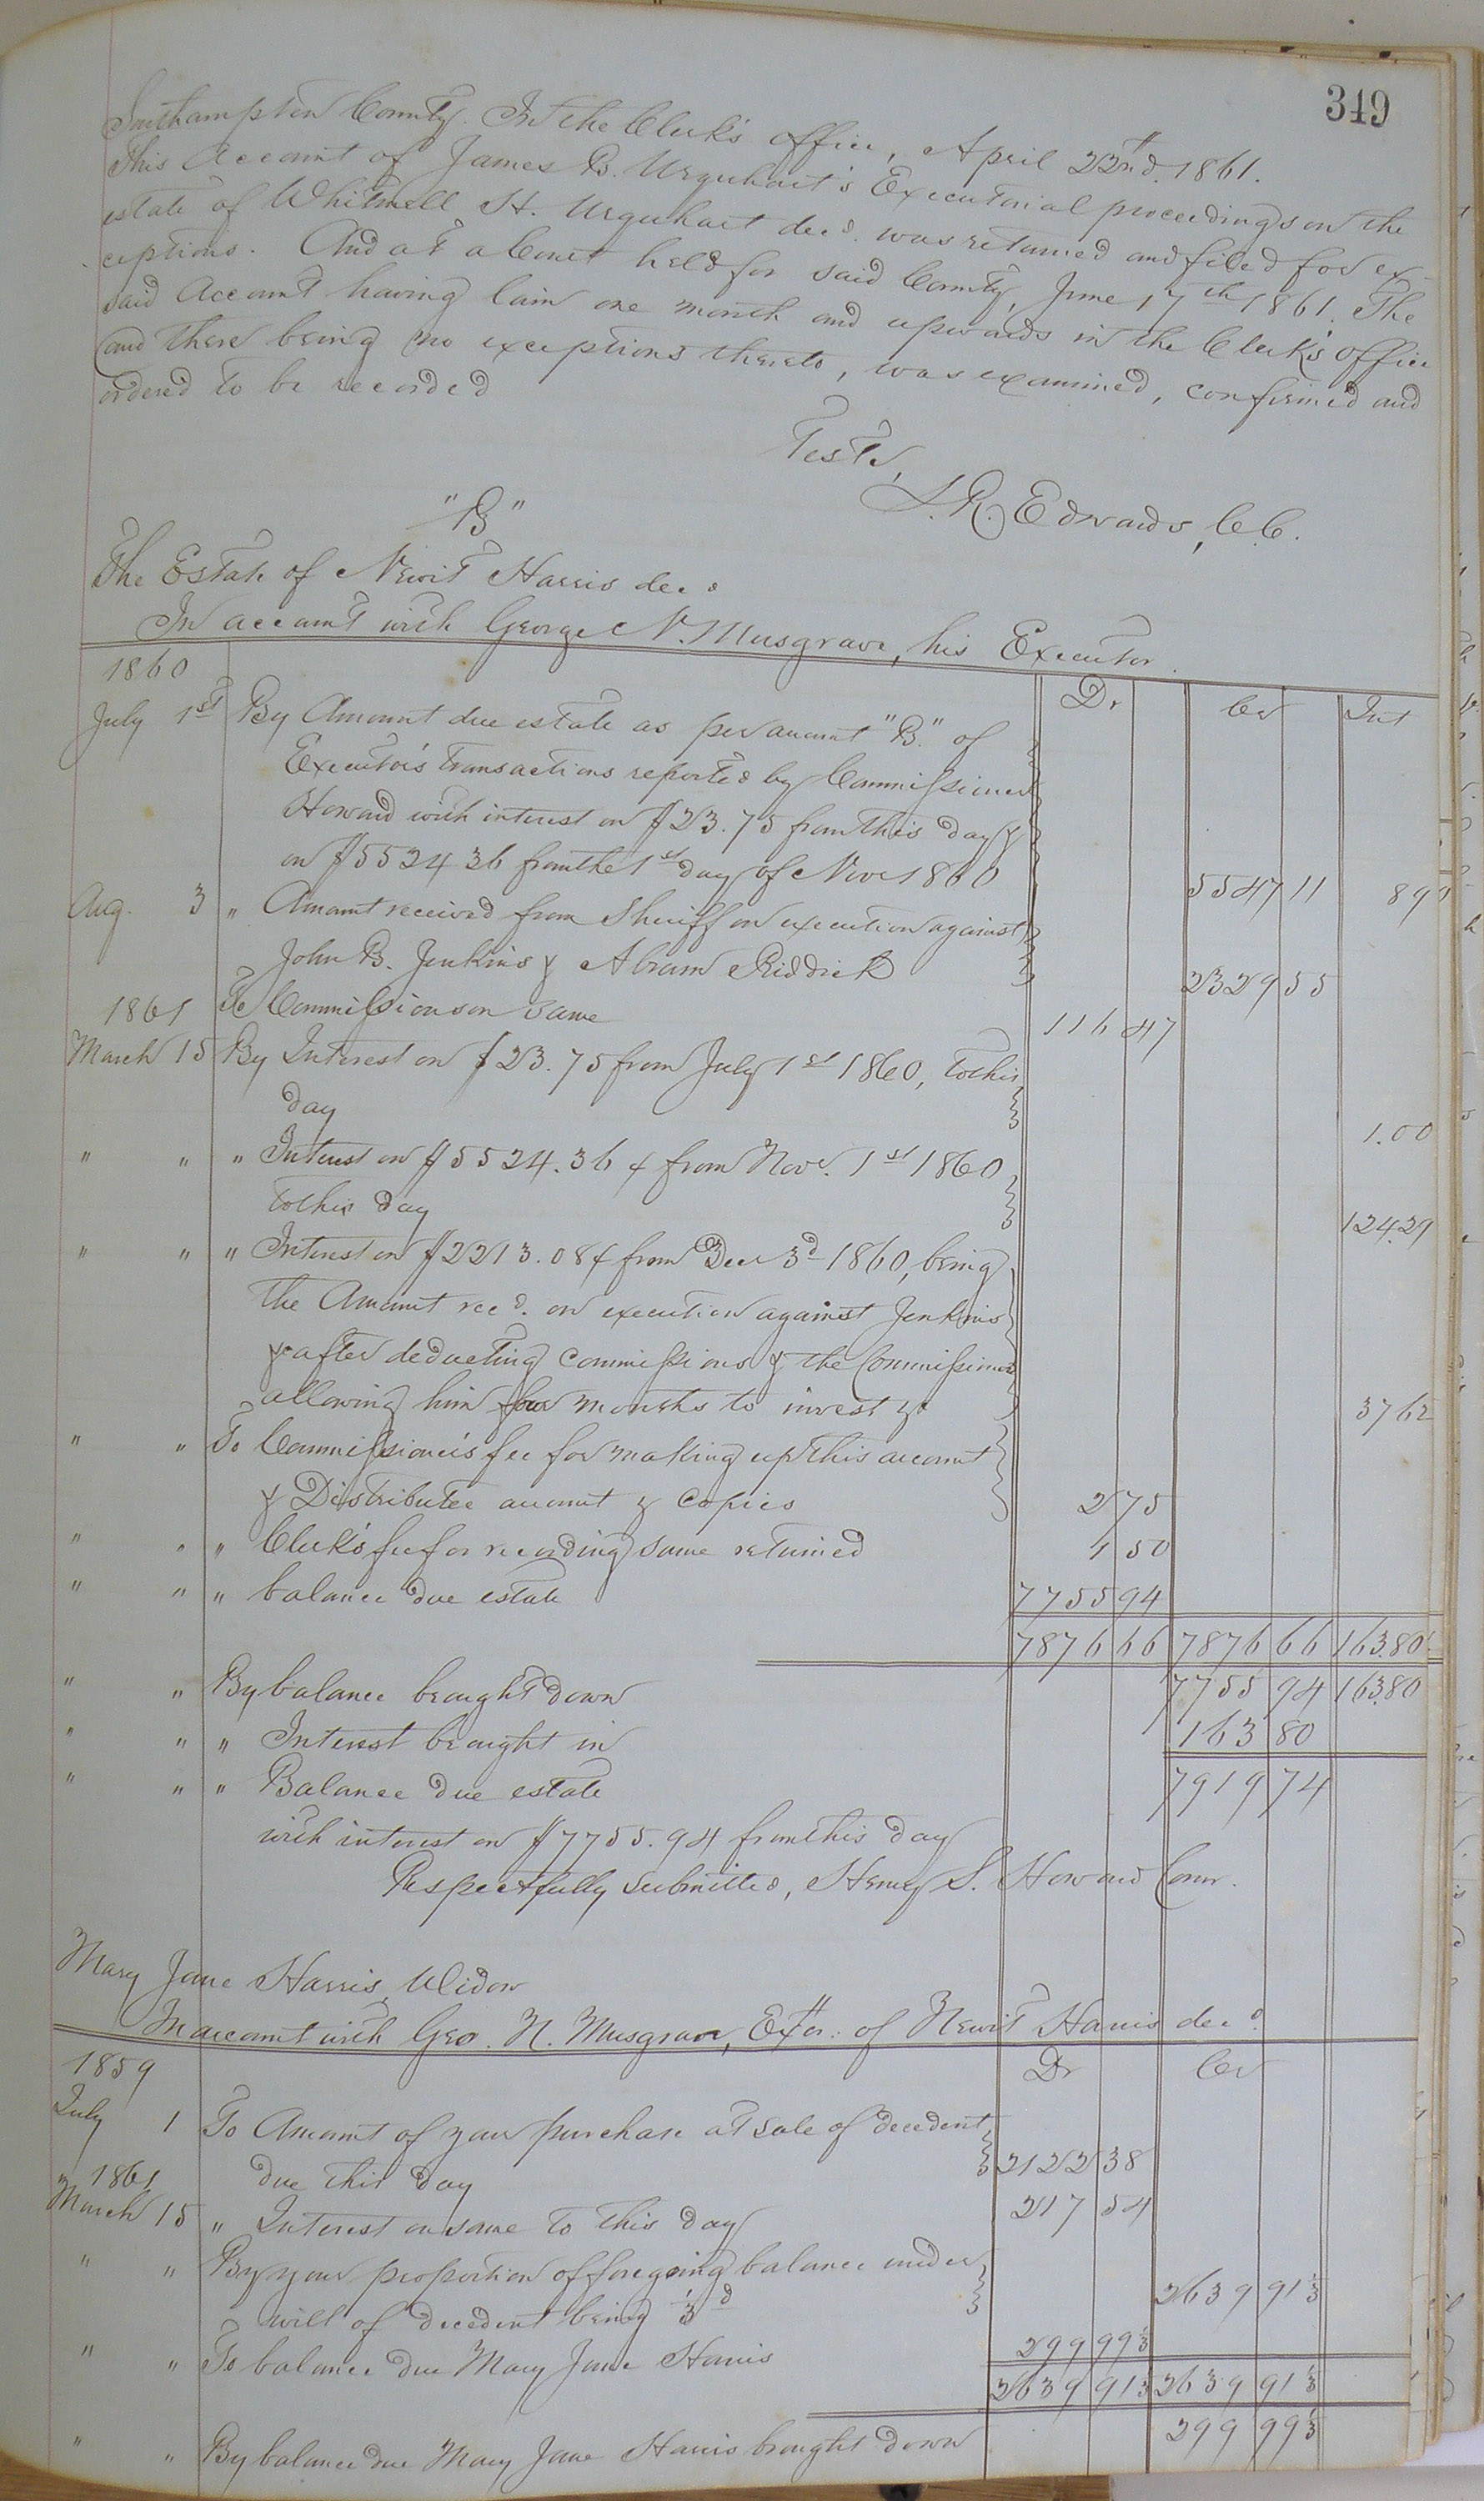 349
Southampton County. In the Clerk's office, April 22nd. 1861.
This Account of James B. Urquhart's Executorial proceedings on the
estate of Whitmell H. Urquhart decd. was returned and filed for ex-
ceptions. And at a Court held for said County, June 17th 1861. The
said Account having lain one month and upwards in the Clerk's office
and there being no exceptions thereto, was examined, confirmed and
ordered to be recorded
Teste,
L. R. Edwards, C. C.
"B"
The Estate of Newit Harris decd
In account with George N. Musgrave, his Executor.
1860 Dr Cr Int
July 1st By Amount due estate as per account "B." of
Executor's transactions reported by Commissioner
Howard with interest on $23.75 from this day &
on $5524 36 from the 1st day of Novr 1860 5547 11 89
Aug. 3 " Amount received from Sheriff on execution against
John B. Jenkins & Abram Riddick 2329 55
To Commissions on same 116 47
1861
March 15 By Interest on $23.75 from July 1st 1860, to this
day 1.00
" " " Interest on $5524.36 ¢ from Nov. 1st 1860
to this day 124.29
" " " Interest on $2213.08 ¢ from Decr 3d 1860, being
the Amount recd. on execution against Jenkins
& after deducting commissions & the Commissioner
allowing him four months to invest &c 37 62
" " To Commissioner's fee for making up this account
& Distributee account & copies 2 75
" " " Clerk's fee for recording same returned 1 50
" " " balance due estate 7755 94
7876 66 7876 66 163.80
" " By balance brought down 7755 94 163.80
" " " Interest brought in 163 80
" " " Balance due estate 7919 74
with interest on $7755.94 from this day
Respectfully submitted, Henry S. Howard Comr.
Mary Jane Harris, Widow
In account with Geo. N. Musgrave, Exor. of Newit Harris decd.
1859 Dr Cr
July 1 To Amount of your purchase at sale of decedent
due this day 2122 38
" 1861
March 15 " Interest on same to this day 217 54
" " By your proportion of foregoing balance under
will of decedent being 1/3d 2639 91 1/3
" " To balance due Mary Jane Harris 299 99 1/3
2639 91 1/3 2639 91 1/3
" " By balance due Mary Jane Harris brought down 299 99 1/3